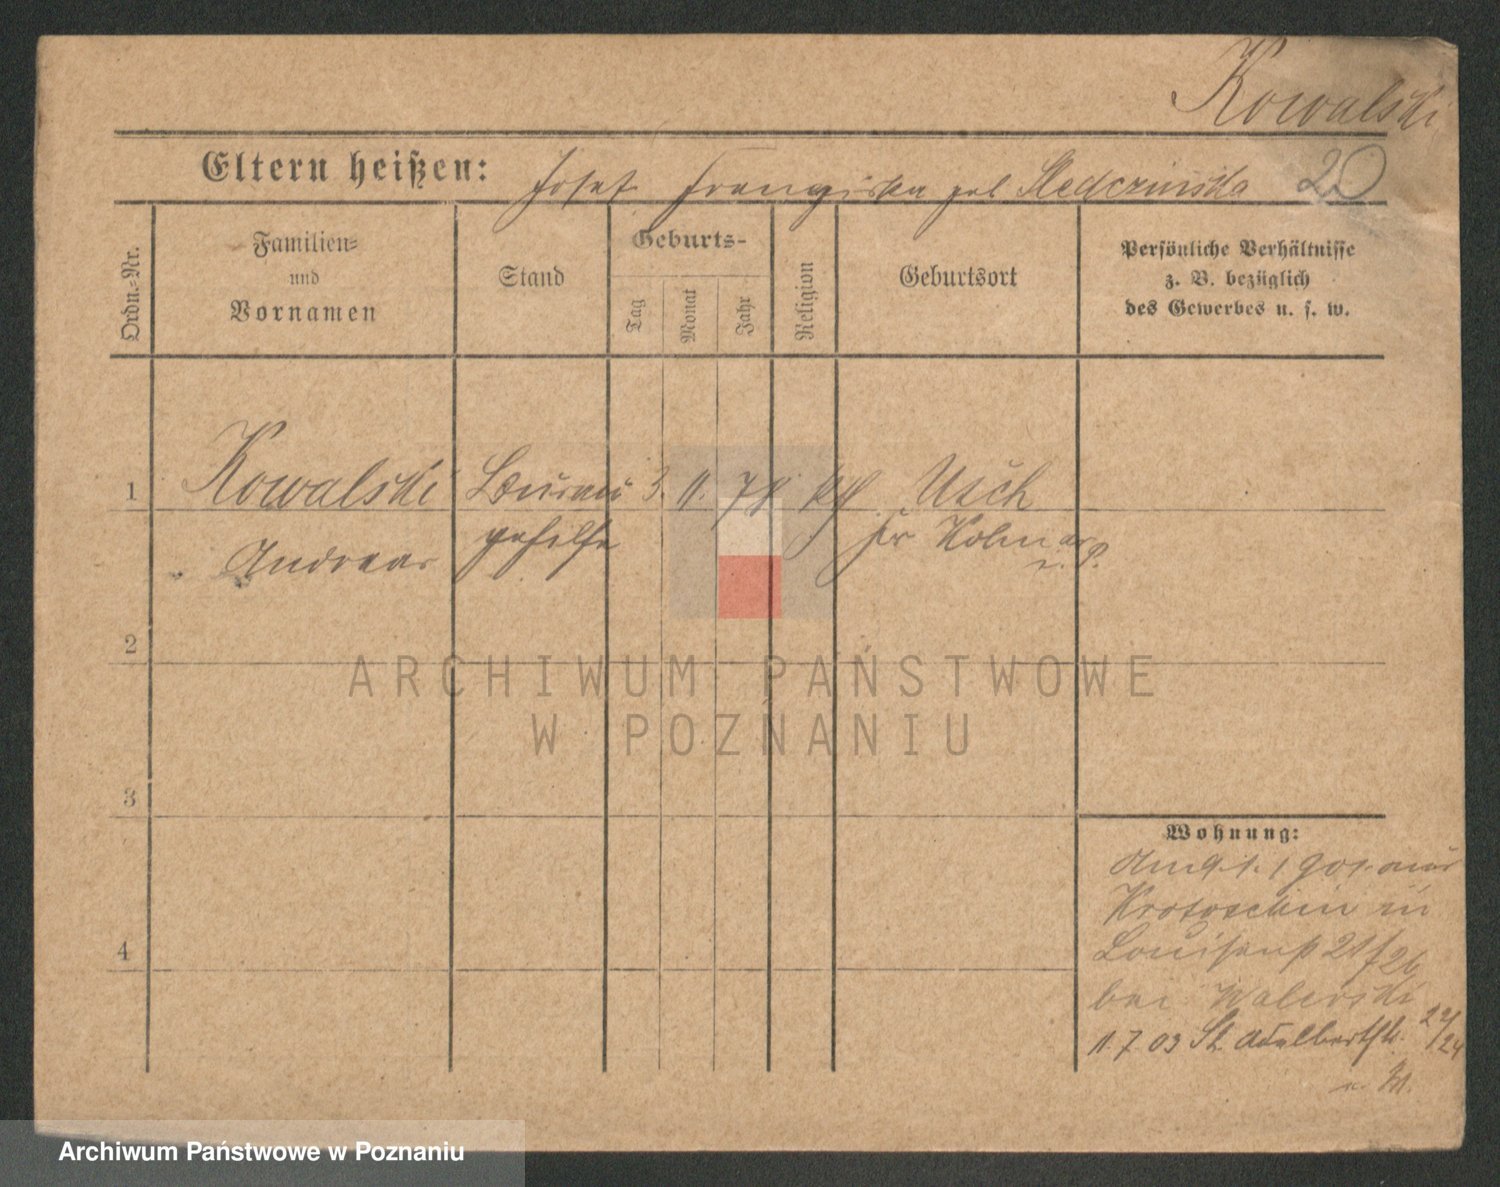 Kowalski
Eltern heißen: Josef Franziska geb Sledczinska 20
Ordn.-Nr.
Familien-
und
Vornamen
Stand
Geburts-
Tag
Monat
Jahr
Religion
Geburtsort
Persönliche Verhältnisse
z. B. bezüglich
des Gewerbes u. s. w.
1 Kowalski Bureau 3. 11. 78 kath Usch
Andreas gehilfe Kr Kolmar
i. P.
2
ARCHIWUM PAŃSTWOWE
W POZNANIU
3
Wohnung:
Am 9.1.1901 aus
Krotoschin in
4 Louisenst 21/26
bei Walerski
11.7.03 St. Adalbertstr. 22/24
Archiwum Państwowe w Poznaniu